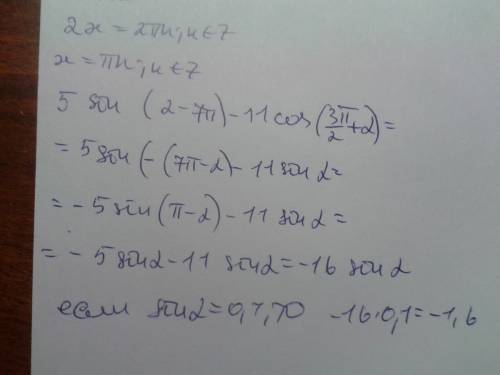 2x = 2πn; n ∈ Z
x = πn; n ∈ Z
5 sin (α - 7π) - 11 cos (3π/2 + α) =
= 5 sin (-(7π - α) - 11 sin α =
= - 5 sin (π - α) - 11 sin α =
= - 5 sin α - 11 sin α = -16 sin α
если sin α = 0,1, -16·0,1 = -1,6